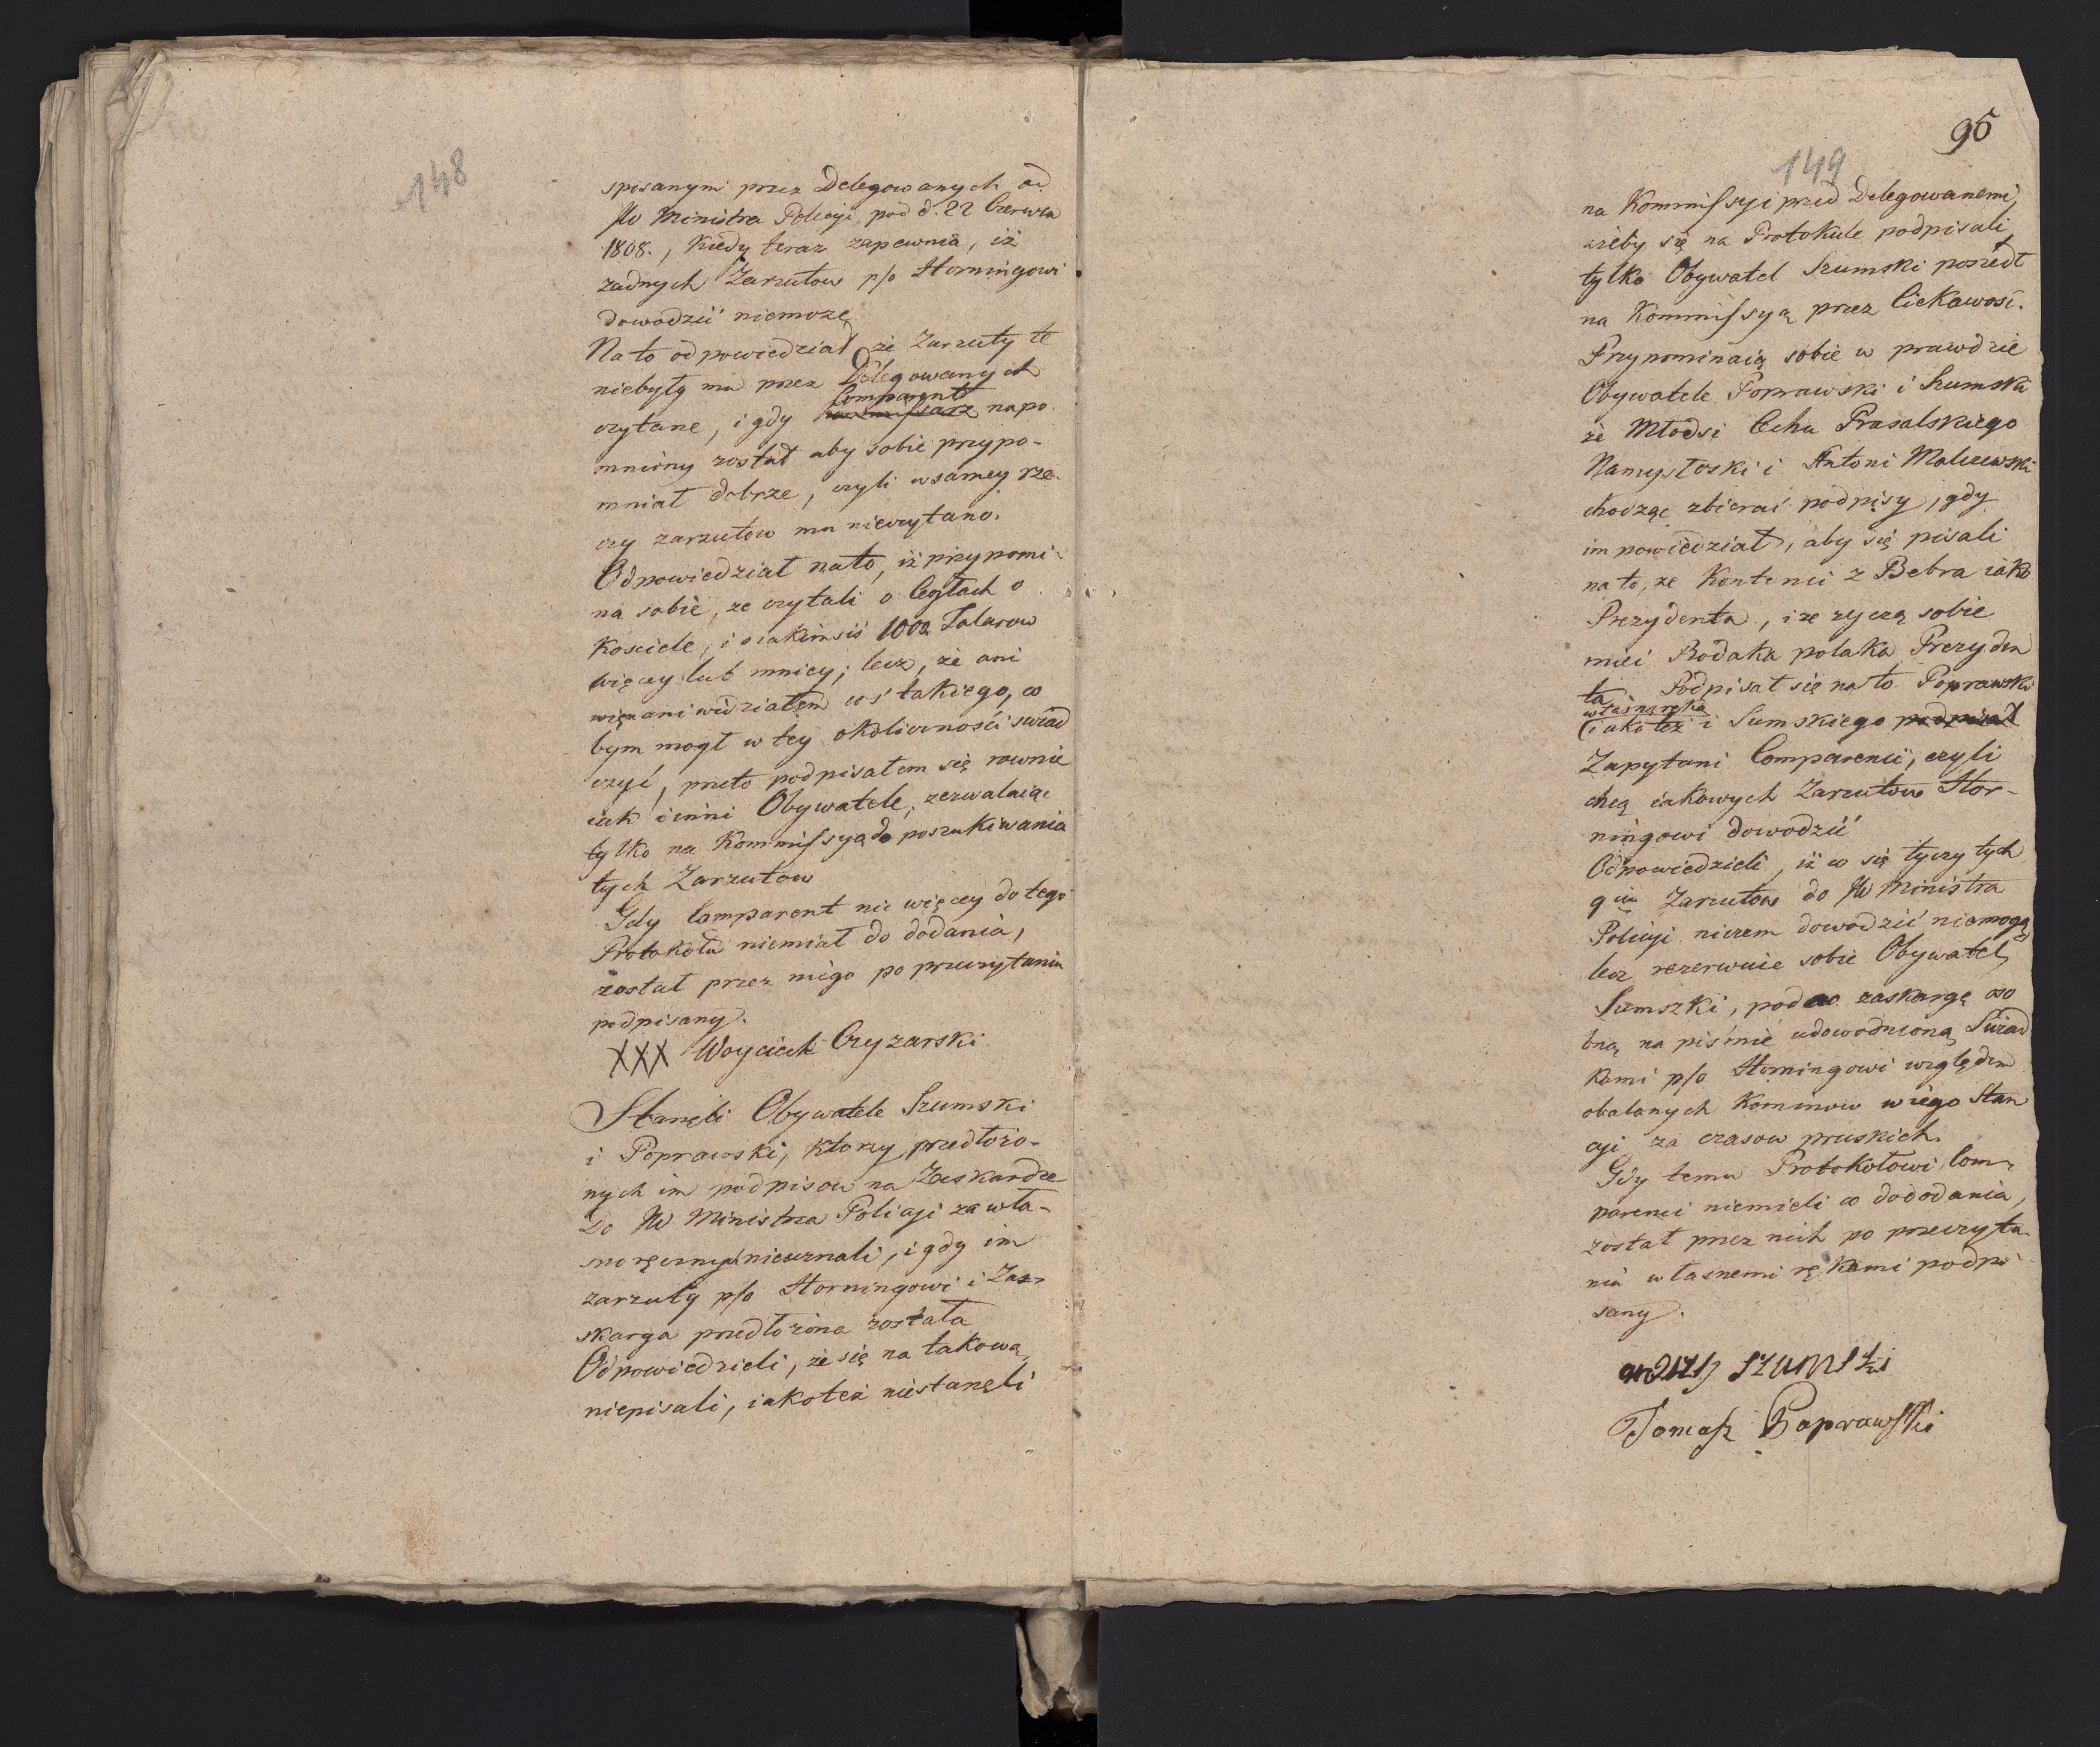 148
spisanym przez Delegowanych od
JW Ministra Policyi pod d. 22 Czerwca
1808., kiedy teraz zapewnia, iż
zadnych Zarzutow p/o Horningowi
dowodzić niemoze
Na to odpowiedział że Zarzuty te
niebyły mu przez Delegowanych
Comparent
czytane, i gdy napo-
mniony został aby sobie przypo-
mniał dobrze, czyli w samey rze-
czy zarzutow mu nieczytano.
Odpowiedział na to, iż przypomi-
na sobie, ze czytali o Cegłach o
Kosciele, i o iakimsiś 1000 Talarow
więcey lub mniey; lecz, że ani
wiem ani widziałem coś takiego, co
bym mogł w tey okoliczności swiad
czyć, przeto podpisałem się rownie
iak i inni Obywatele, zezwalaiąc
tylko na Kommissyą do poszukiwania
tych Zarzutow
Gdy Comparent nic więcey do tego
Protokołu niemiał do dodania,
został przez niego po przeczytaniu
podpisany.
XXX Woyciech Cryzarski
Stanęli Obywatele Szumski
i Poprawski, ktorzy przedłożo-
nych im podpisow na Zaskardze
Do JW Ministra Policyi za wła-
snoręcznych nieuznali, i gdy im
zarzuty p/o Horningowi i Zas-
skarga przedłożona została
Odpowiedzieli, że się na takową
niepisali, iakoteż niestanęli
95
149
na Kommissyi przed Delegowanemi,
ażeby się na Protokule podpisali
tylko Obywatel Szumski poszedł
na Kommissyą przez Ciekawość.
Przypominaią sobie w prawdzie
Obywatele Poprawski i Szumski
że Młodsi Cechu Prasalskiego
Namysłoski i Antoni Malczewski
chodząc zbierać podpisy, gdy
im powiedział, aby się pisali
na to, ze Kontenci z Bebra iako
Prezydenta, i ze zyczą sobie
mieć Rodaka polaka Prezyden
ta. Podpisał się na to Poprawski
własną ręką
iako też i Sumskiego podpisał
Zapytani Comparenci, czyli
chcą iakowych Zarzutow Hor-
ningowi dowodzić
Odpowiedzieli, iż co się tyczy tych
Zarzutow do JW Ministra
Policyi niczem dowodzić niemogą
lecz rezerwuie sobie Obywatel
Sumszki, podac zaskargę oso
bną na piśmie udowodnioną Świad
kami p/o Horningowi względem
obalonych Kominow w iego Stan
cyi za czasow pruskich.
Gdy temu Protokołowi Com-
parenci niemieli co do dodania,
został przez nich po przeczyta-
niu własnemi rękami podpi-
sany.
andrzy szumski
Tomasz Poprawski